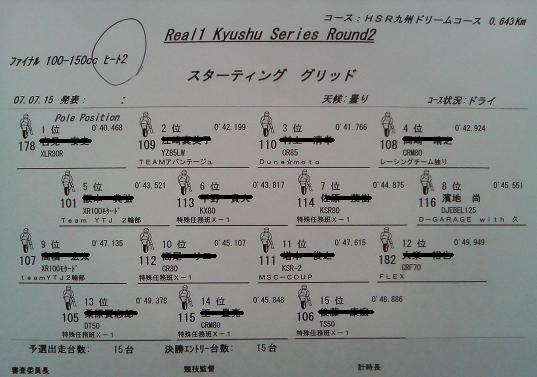 コース：ＨＳＲ九州ドリームコース 0.643Km
Real1 Kyushu Series Round2
ファイナル 100-150cc ヒート2
スターティング グリッド
07.07.15 発表： ： 天候：曇り コース状況：ドライ
Pole Position
1 位 0'40.468 2 位 0'42.199 3 位 0'41.766 4 位 0'42.924
178 XLR80R 109 YZ85LW 110 CR85 108 CRM80
TEAMアバンテージュ Dune☆moto レーシングチーム独り
5 位 0'43.521 6 位 0'43.817 7 位 0'44.875 8 位 0'45.551
濱地 尚
101 XR100モタード 113 KX80 114 KSR80 116 DJEBEL125
Team YTJ 2輪部 特殊任務班Ｘ－１ 特殊任務班Ｘ－１ D-GARAGE with 久
9 位 0'47.135 10 位 0'45.107 11 位 0'47.615 12 位 0'49.949
107 XR100モタード 112 CR80 111 KSR-2 182 CRF70
teamYTJ2輪部 特殊任務班Ｘ－１ MSC-COUP FLEX
13 位 0'49.378 14 位 0'45.848 15 位 0'48.886
105 DT50 115 CRM80 106 TS50
特殊任務班Ｘ－１ 特殊任務班Ｘ－１ 特殊任務班Ｘ－１
予選出走台数： 15台 決勝エントリー台数： 15台
審査委員長 競技監督 計時長